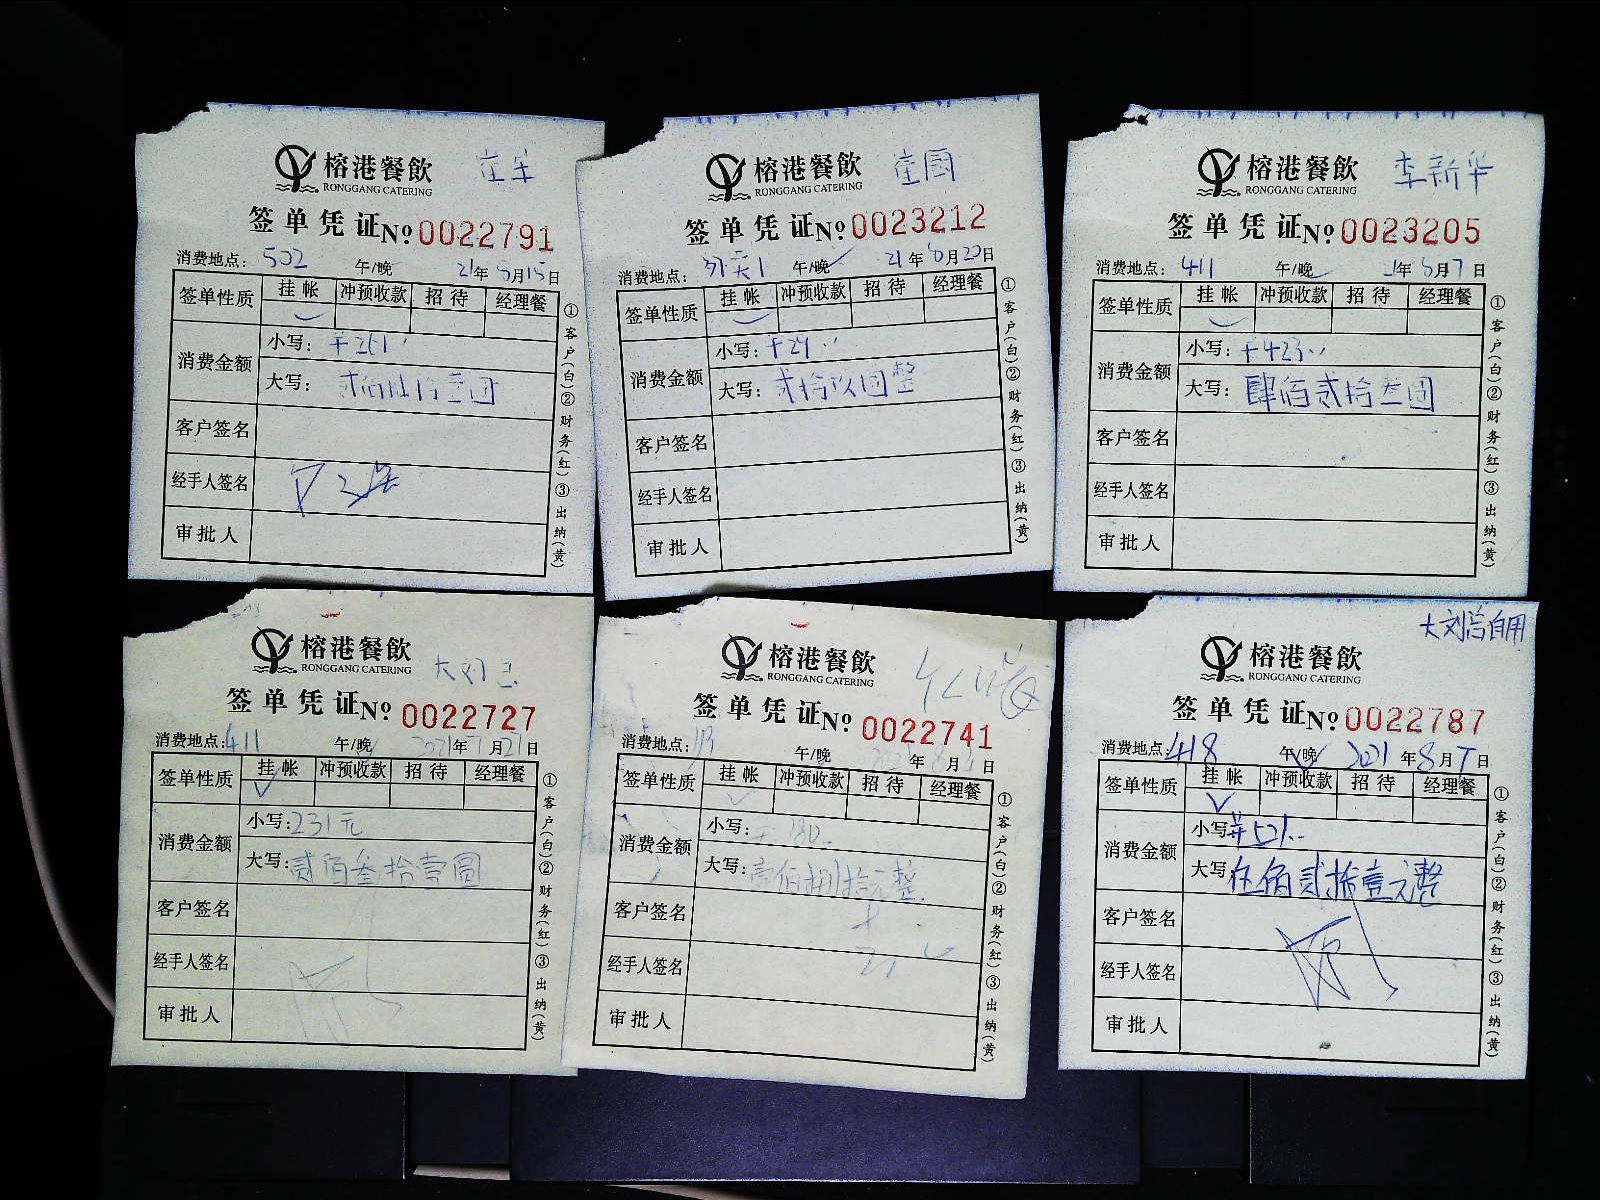 榕港餐飲
RONGGANG CATERING
签单凭证№0022791
消费地点：502 午/晚 21年 月15日
签单性质 挂帐 冲预收款 招待 经理餐
消费金额 小写：
大写：
客户签名
经手人签名
审批人
①客户(白)②财务(红)③出纳(黄)
榕港餐飲
RONGGANG CATERING
签单凭证№0023212
消费地点： 午/晚 21年 月20日
签单性质 挂帐 冲预收款 招待 经理餐
消费金额 小写：
大写：
客户签名
经手人签名
审批人
①客户(白)②财务(红)③出纳(黄)
李新华
榕港餐飲
RONGGANG CATERING
签单凭证№0023205
消费地点：411 午/晚 年 月7日
签单性质 挂帐 冲预收款 招待 经理餐
消费金额 小写：423
大写：肆佰贰拾叁圆
客户签名
经手人签名
审批人
①客户(白)②财务(红)③出纳(黄)
榕港餐飲
RONGGANG CATERING
签单凭证№0022727
消费地点：411 午/晚 2021年7月21日
签单性质 挂帐 冲预收款 招待 经理餐
消费金额 小写：231元
大写：贰佰叁拾壹圆
客户签名
经手人签名
审批人
①客户(白)②财务(红)③出纳(黄)
榕港餐飲
RONGGANG CATERING
签单凭证№0022741
消费地点： 午/晚 年8月 日
签单性质 挂帐 冲预收款 招待 经理餐
消费金额 小写：180
大写：壹佰捌拾元整
客户签名
经手人签名
审批人
①客户(白)②财务(红)③出纳(黄)
大刘总自用
榕港餐飲
RONGGANG CATERING
签单凭证№0022787
消费地点：418 午/晚 2021年8月7日
签单性质 挂帐 冲预收款 招待 经理餐
消费金额 小写：521
大写：伍佰贰拾壹元整
客户签名
经手人签名
审批人
①客户(白)②财务(红)③出纳(黄)